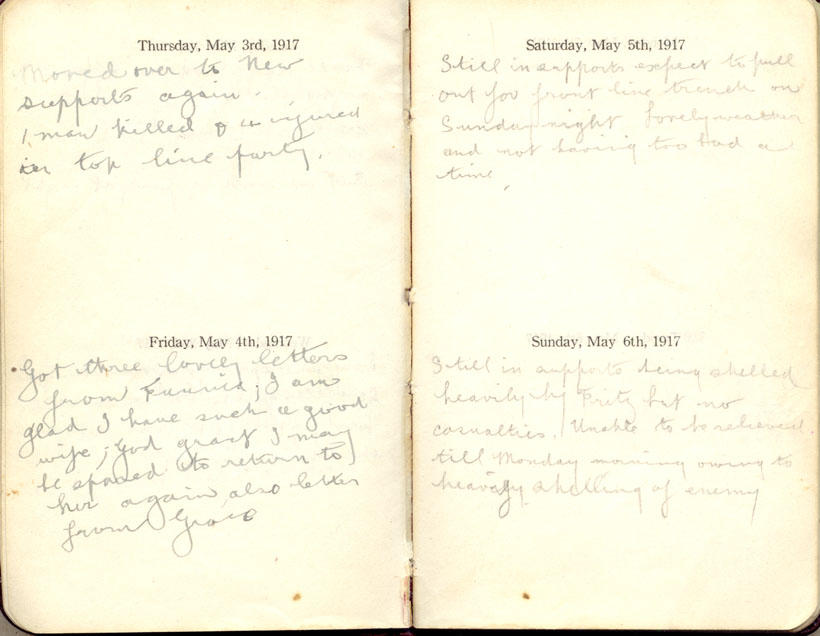 Thursday, May 3rd, 1917
Moved over to New
supports again.
1 man killed & injured
in top line party.
Friday, May 4th, 1917
Got three lovely letters
from Fannie; I am
glad I have such a good
wife; God grant I may
be spared to return to
her again also letter
from Grace
Saturday, May 5th, 1917
Still in supports expect to pull
out for front line trench on
Sunday night lovely weather
and not having too bad a
time,
Sunday, May 6th, 1917
Still in supports being shelled
heavily by Fritz but no
casualties. Unable to be relieved
till Monday morning owing to
heavy shelling of enemy